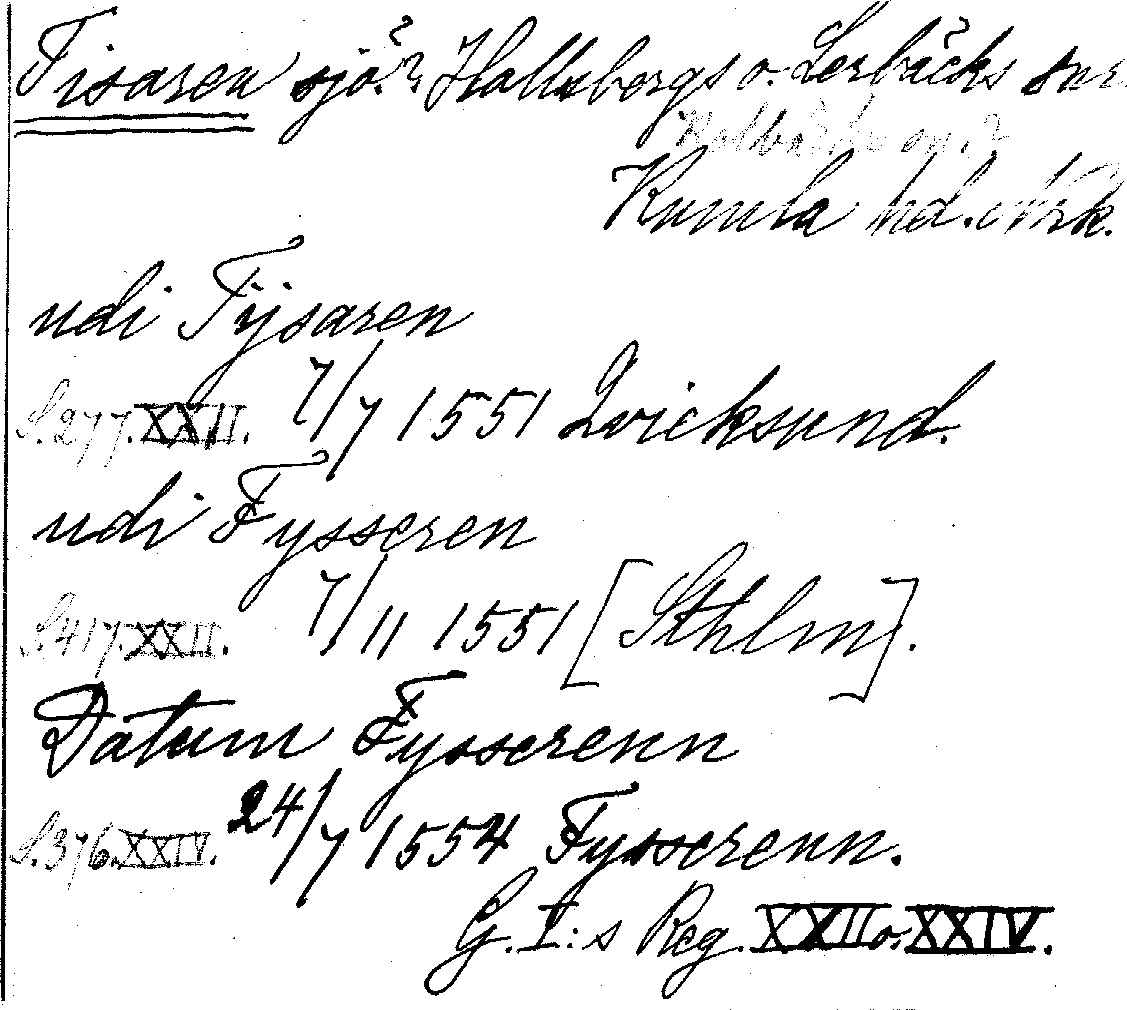 Tisaren sjö? Hallsbergs o. Lerbäcks snr
Kumla hd. Nrk.
udi Tÿsaren
S. 277. XXII. 7/7 1551 Qvicksund.
udi Fysseren
S. 417. XXII. 7/11 1551 [Sthlm].
Datum Fysserenn
S. 376. XXIV. 24/7 1554 Fysserenn.
G. I:s Reg. XXII o. XXIV.